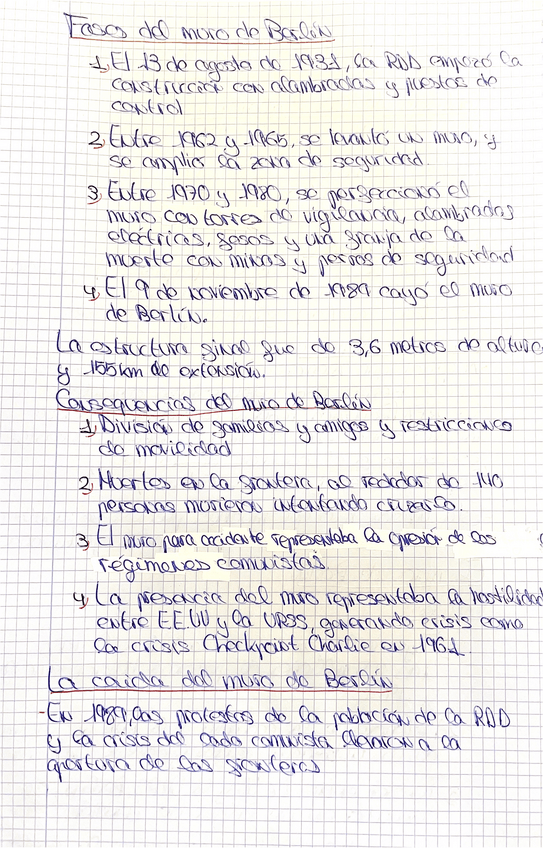 Fases del muro de Berlín
1. El 13 de agosto de 1931, la RDD empezó la
construcción con alambradas y puestos de
control
2. Entre 1962 y 1965, se levantó un muro, y
se amplio la zona de seguridad
3. Entre 1970 y 1980, se perfeccionó el
muro con torres de vigilancia, alambradas
electrias, fosos y una franja de la
muerte con minas y perros de seguridad
4. El 9 de noviembre de 1989 cayó el muro
de Berlín.
La estructura final fue de 3,6 metros de altura
y 155 km de extensión.
Consequencias del muro de Berlín
1. División de familias y amigos y restricciones
de movilidad
2. Muertes en la frontera, al rededor de 140
personas murieron intentando cruzarlo.
3 El muro para occidente representaba la opresión de los
régimenes comunistas.
4. La presencia del muro representaba la hostilidad
entre EEUU y la URSS, generando crisis como
la crisis Checkpoint Charlie en 1961
La caída del muro de Berlín
-En 1989, las protestas de la población de la RDD
y la crisis del lado comunista llevaron a la
apertura de las fronteras